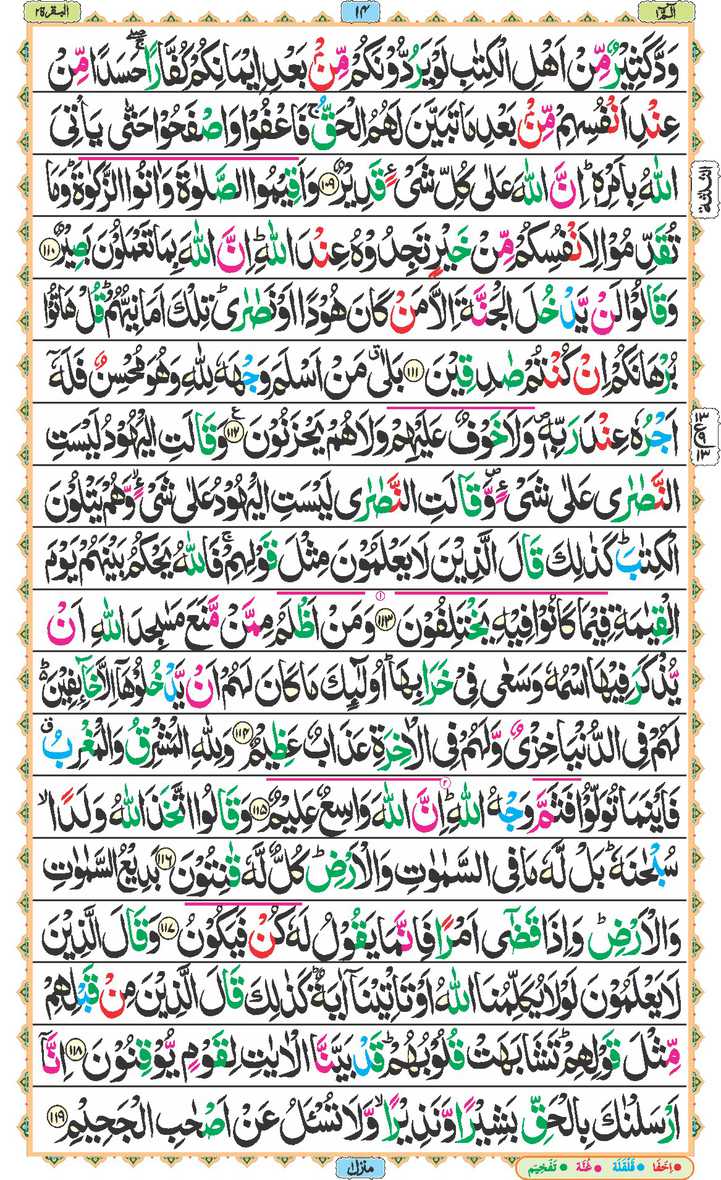 الٓمّٓ ۱
۱۴
البقرة ۲
وَدَّ كَثِيْرٌ مِّنْ اَهْلِ الْكِتٰبِ لَوْ يَرُدُّوْنَكُمْ مِّنْۢ بَعْدِ اِيْمَانِكُمْ كُفَّارًا ۖۚ حَسَدًا مِّنْ
عِنْدِ اَنْفُسِهِمْ مِّنْۢ بَعْدِ مَا تَبَيَّنَ لَهُمُ الْحَقُّ ۚ فَاعْفُوْا وَاصْفَحُوْا حَتّٰى يَاْتِىَ
اللّٰهُ بِاَمْرِهٖ ؕ اِنَّ اللّٰهَ عَلٰى كُلِّ شَىْءٍ قَدِيْرٌ ۱۰۹ وَاَقِيْمُوا الصَّلٰوةَ وَاٰتُوا الزَّكٰوةَ ؕ وَمَا
تُقَدِّمُوْا لِاَنْفُسِكُمْ مِّنْ خَيْرٍ تَجِدُوْهُ عِنْدَ اللّٰهِ ؕ اِنَّ اللّٰهَ بِمَا تَعْمَلُوْنَ بَصِيْرٌ ۱۱۰
وَقَالُوْا لَنْ يَّدْخُلَ الْجَنَّةَ اِلَّا مَنْ كَانَ هُوْدًا اَوْ نَصٰرٰى ؕ تِلْكَ اَمَانِيُّهُمْ ؕ قُلْ هَاتُوْا
بُرْهَانَكُمْ اِنْ كُنْتُمْ صٰدِقِيْنَ ۱۱۱ بَلٰى ۗ مَنْ اَسْلَمَ وَجْهَهٗ لِلّٰهِ وَهُوَ مُحْسِنٌ فَلَهٗۤ
اَجْرُهٗ عِنْدَ رَبِّهٖ ۪ وَلَا خَوْفٌ عَلَيْهِمْ وَلَا هُمْ يَحْزَنُوْنَ ۱۱۲ وَقَالَتِ الْيَهُوْدُ لَيْسَتِ
النَّصٰرٰى عَلٰى شَىْءٍ ۪ وَّقَالَتِ النَّصٰرٰى لَيْسَتِ الْيَهُوْدُ عَلٰى شَىْءٍ ۙ وَّهُمْ يَتْلُوْنَ
الْكِتٰبَ ؕ كَذٰلِكَ قَالَ الَّذِيْنَ لَا يَعْلَمُوْنَ مِثْلَ قَوْلِهِمْ ۚ فَاللّٰهُ يَحْكُمُ بَيْنَهُمْ يَوْمَ
الْقِيٰمَةِ فِيْمَا كَانُوْا فِيْهِ يَخْتَلِفُوْنَ ۱۱۳ وَمَنْ اَظْلَمُ مِمَّنْ مَّنَعَ مَسٰجِدَ اللّٰهِ اَنْ
يُّذْكَرَ فِيْهَا اسْمُهٗ وَسَعٰى فِىْ خَرَابِهَا ؕ اُولٰٓئِكَ مَا كَانَ لَهُمْ اَنْ يَّدْخُلُوْهَاۤ اِلَّا خَآئِفِيْنَ ؕ
لَهُمْ فِى الدُّنْيَا خِزْىٌ وَّلَهُمْ فِى الْاٰخِرَةِ عَذَابٌ عَظِيْمٌ ۱۱۴ وَلِلّٰهِ الْمَشْرِقُ وَالْمَغْرِبُ ۗ
فَاَيْنَمَا تُوَلُّوْا فَثَمَّ وَجْهُ اللّٰهِ ؕ اِنَّ اللّٰهَ وَاسِعٌ عَلِيْمٌ ۱۱۵ وَقَالُوا اتَّخَذَ اللّٰهُ وَلَدًا ۙ
سُبْحٰنَهٗ ؕ بَلْ لَّهٗ مَا فِى السَّمٰوٰتِ وَالْاَرْضِ ؕ كُلٌّ لَّهٗ قٰنِتُوْنَ ۱۱۶ بَدِيْعُ السَّمٰوٰتِ
وَالْاَرْضِ ؕ وَاِذَا قَضٰٓى اَمْرًا فَاِنَّمَا يَقُوْلُ لَهٗ كُنْ فَيَكُوْنُ ۱۱۷ وَقَالَ الَّذِيْنَ
لَا يَعْلَمُوْنَ لَوْلَا يُكَلِّمُنَا اللّٰهُ اَوْ تَاْتِيْنَاۤ اٰيَةٌ ؕ كَذٰلِكَ قَالَ الَّذِيْنَ مِنْ قَبْلِهِمْ
مِّثْلَ قَوْلِهِمْ ؕ تَشَابَهَتْ قُلُوْبُهُمْ ؕ قَدْ بَيَّنَّا الْاٰيٰتِ لِقَوْمٍ يُّوْقِنُوْنَ ۱۱۸ اِنَّاۤ
اَرْسَلْنٰكَ بِالْحَقِّ بَشِيْرًا وَّنَذِيْرًا ۙ وَّلَا تُسْئَلُ عَنْ اَصْحٰبِ الْجَحِيْمِ ۱۱۹
منزل ۱
اِخفَا قَلْقَلَة غُنَّة تَفْخِيْم